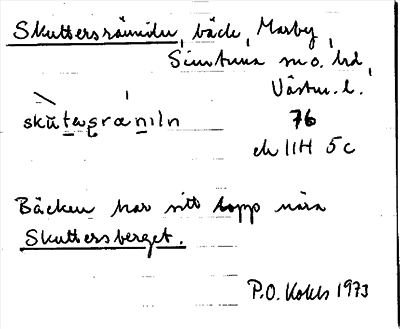 Skuttersrännilen, bäck, Marby,
Simtuna sn o. hd,
Västm. l.
skŭtəʂrænɪln 76
ek 11H 5c
Bäcken har sitt lopp nära
Skuttersberget.
P.O. 1973